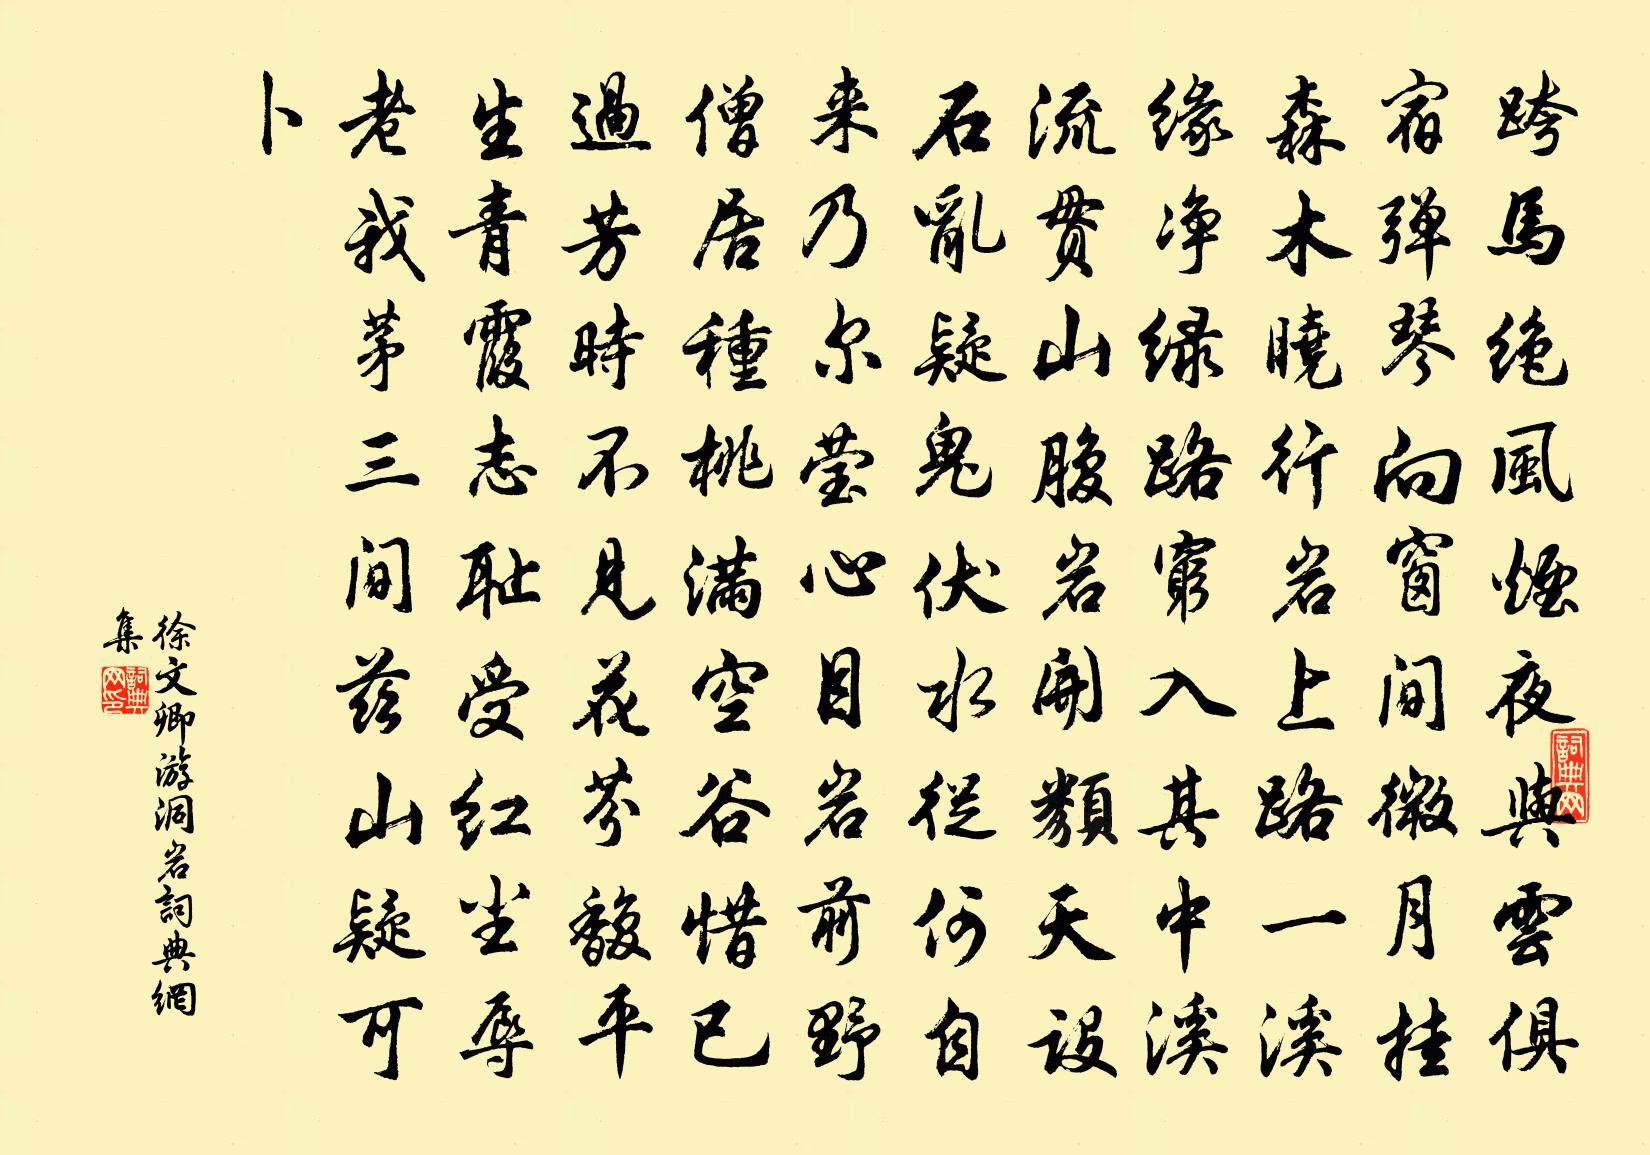 跨馬絶風煙夜與雲俱
宿弹琴向窗间微月挂
森木曉行岩上路一溪
缘净緑路窮入其中溪
流贯山腹岩開類天设
石亂疑鬼伏水從何自
来乃尔莹心目岩前野
僧居種桃满空谷惜已
過芳時不見花芬馥平
生青霞志耻受红尘辱
老我茅三间兹山疑可
卜
徐文卿游洞岩詞典網
集
詞典网
詞典网印